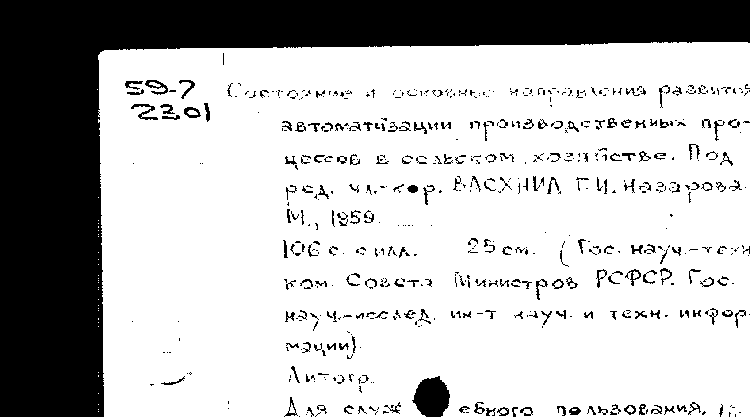 59-7 Состояние и основные направления развития
2301 автоматизации производственных про-
цессов в сельском хозяйстве. Под
ред. чл.-кор. ВАСХНИЛ Г.И. Назарова.
М., 1959.
106 с. с илл. 25 см. (Гос. науч.-техн.
ком. Совета Министров РСФСР. Гос.
науч.-исслед. ин-т науч. и техн. инфор-
мации).
Литогр.
Для служебного пользования.